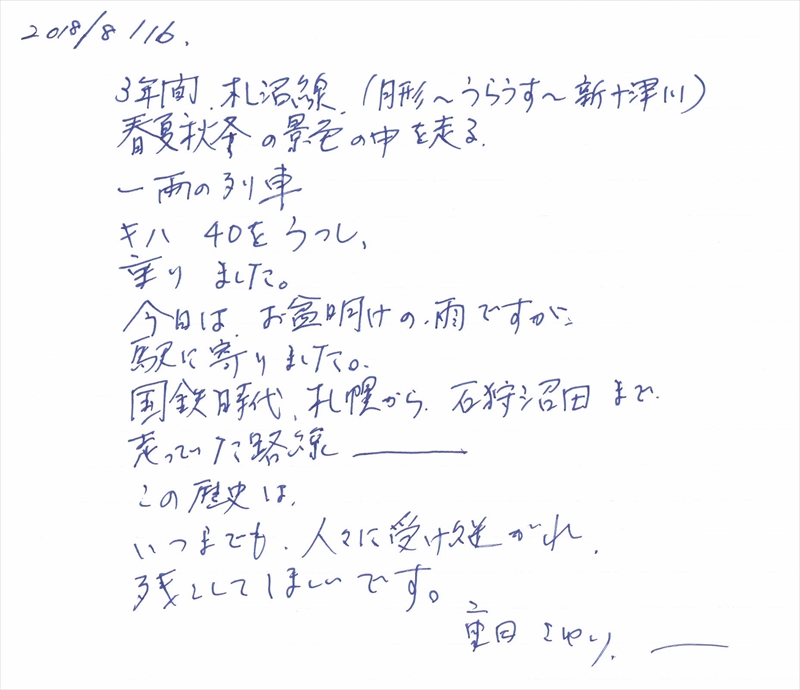 2018/8/16.
3年間、札沼線、(月形～うらうす～新十津川)
春夏秋冬の景色の中を走る。
一両の列車
キハ 40をうつし、
乗りました。
今日は、お盆明けの、雨ですが、
駅に寄りました。
国鉄時代、札幌から、石狩沼田まで
走っていた路線 ――
この歴史は、
いつまでも、人々に受け継がれ、
残してほしいです。